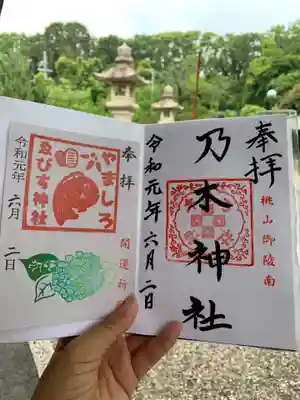 奉拝
桃山御陵南
乃木神社
令和元年六月二日
奉拝
やましろ
ゑびす神社
開運祈
令和元年
六月
二日